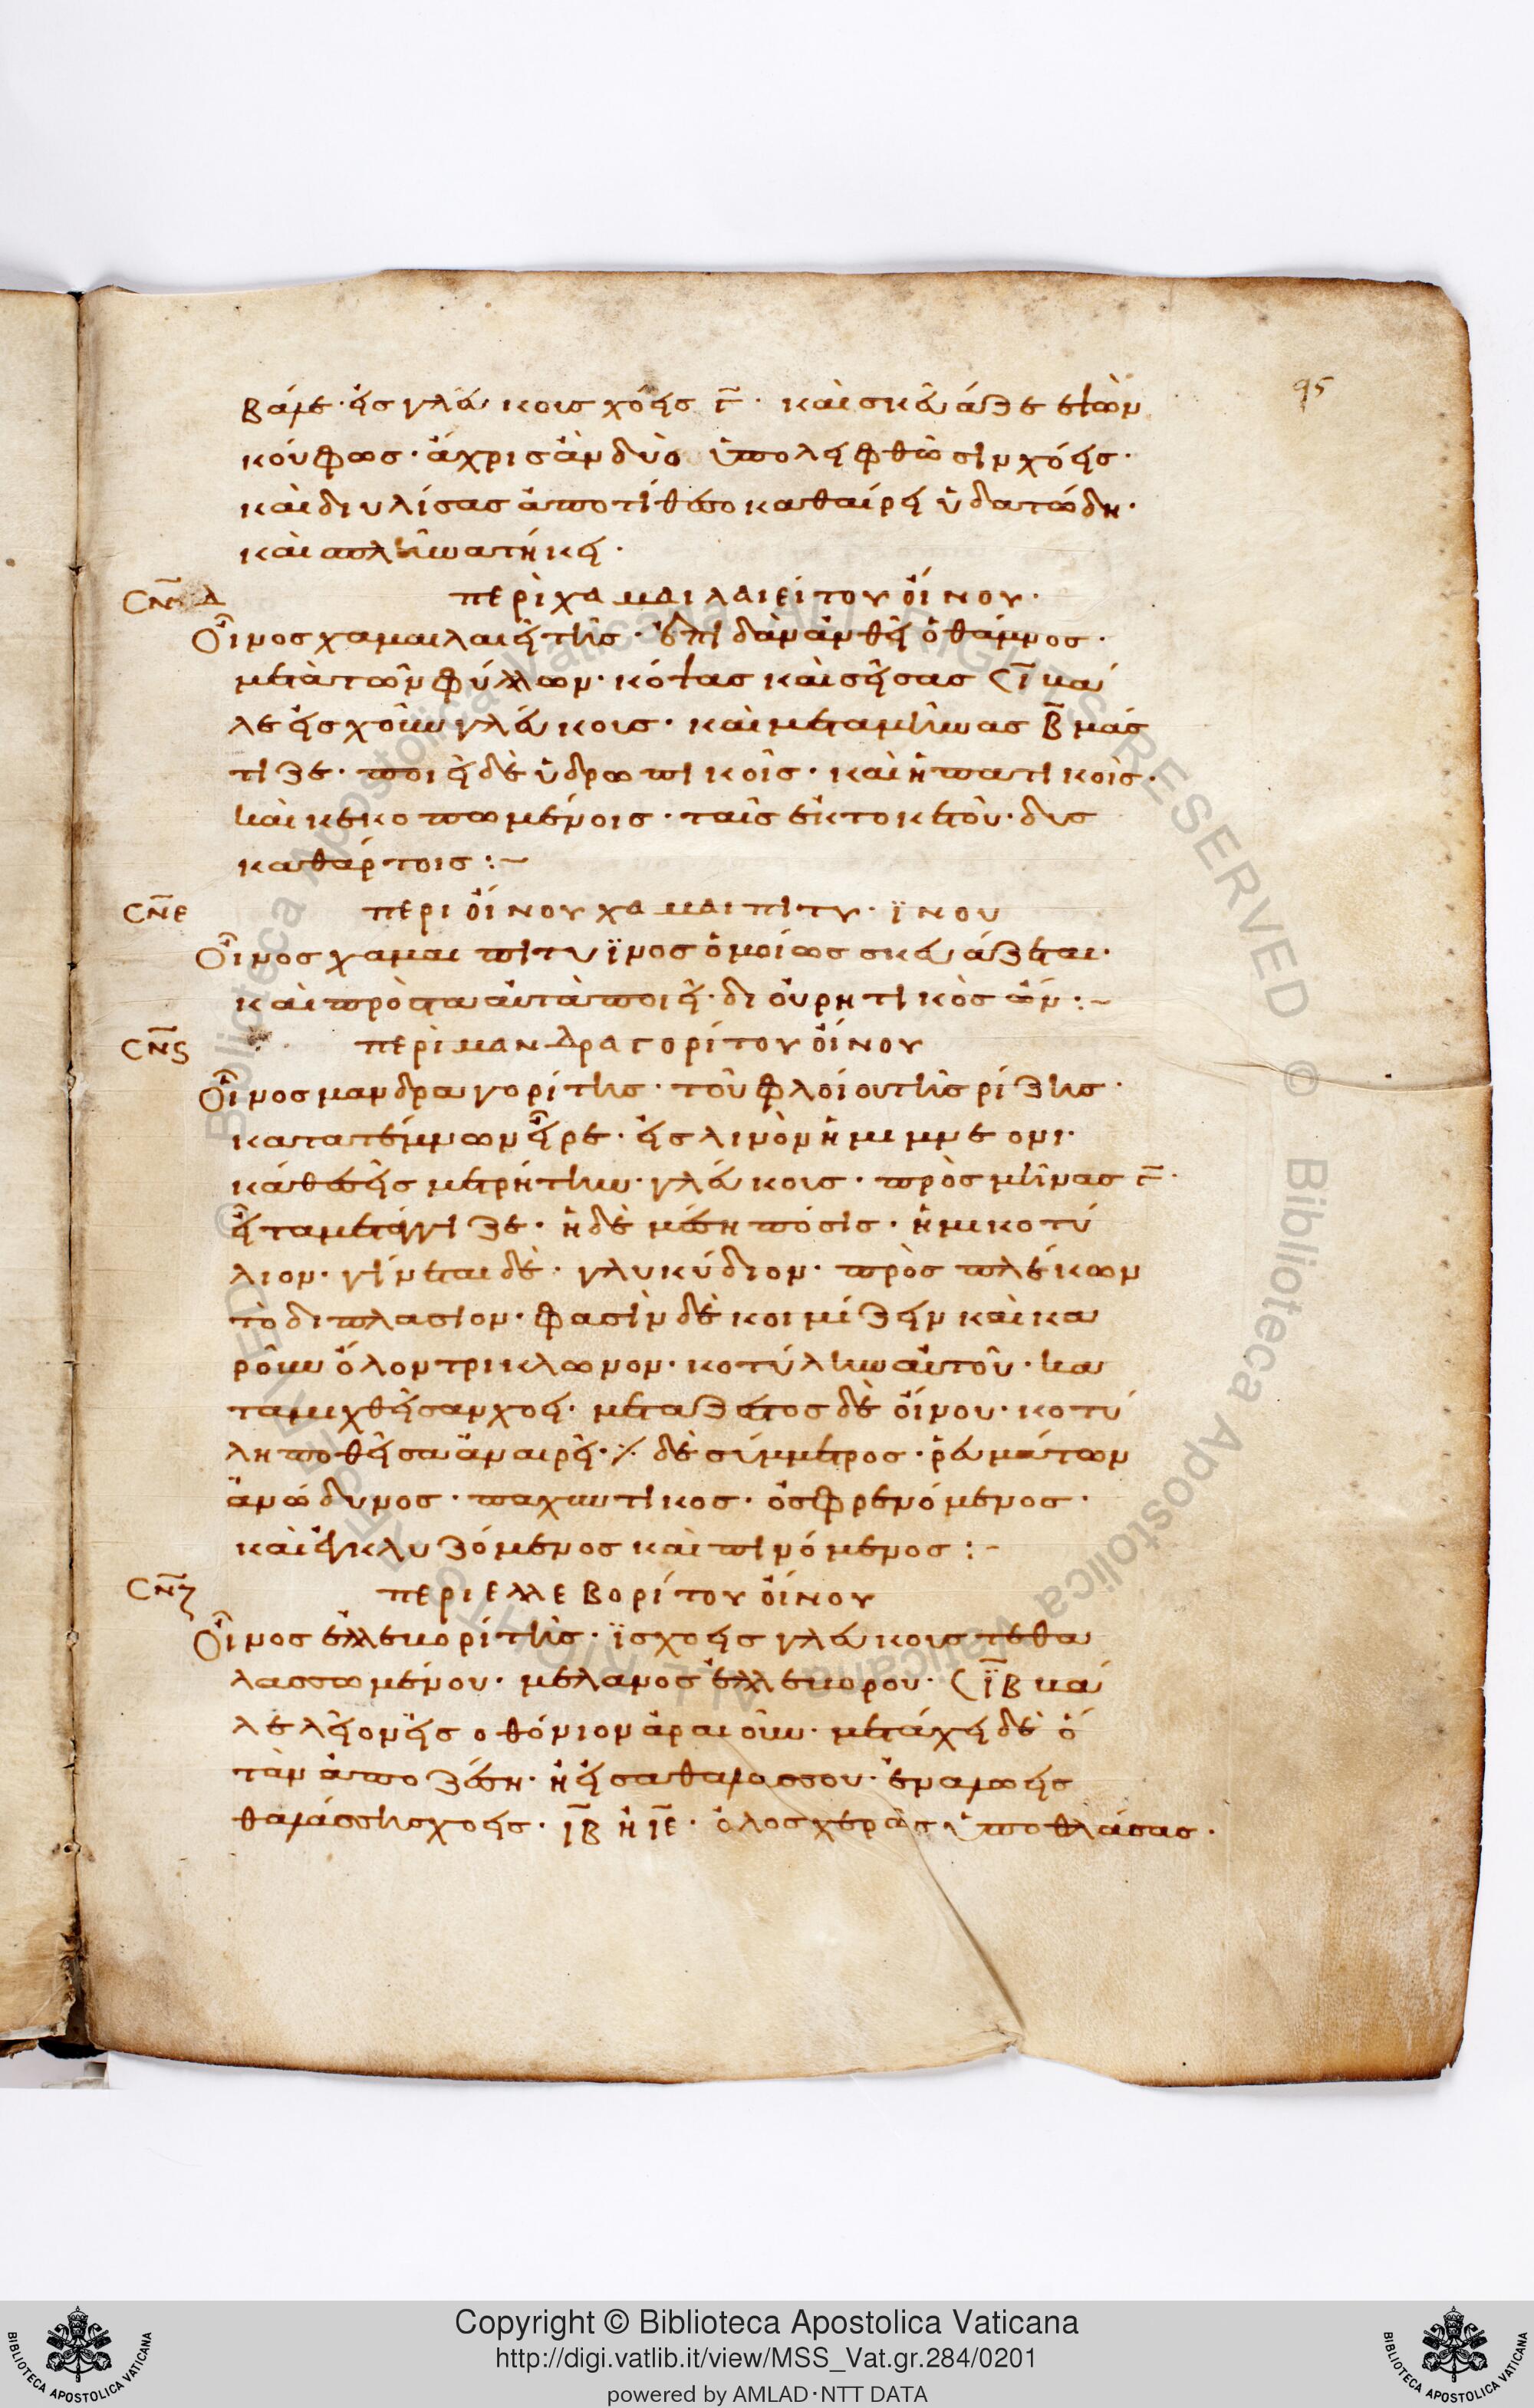 95
βάλε· εἰς γλεύκους χοεῖς γ̄· καὶ σκεύαζε ἑτῶν
κούφως· ἄχρις ἂν δύο ὑπολειφθῶσιν χόεις·
καὶ διυλίσας ἀποτίθεσο καθαίρει ὑδατώδη·
καὶ σπληνατήκει·
σν̄δ περὶ χαμαιλαιεΐτου οἴνου·
Οἶνος χαμαιλαιείτης· ἐπιδὰν ἀνθεῖ ὁ θάμνος·
μετὰ τῶν φύλλων· κόψας καὶ σείσας 𐅻 ῑ βά
λε εἰς χοῦν γλεύκους· καὶ μετὰ μῆνας β̄ μάς
τιζε· ποιεῖ δὲ ὑδρωπικοῖς· καὶ ἡπατικοῖς·
καὶ κεκοπωμένοις· ταῖς ἐκ τοκετοῦ· δυσ
καθάρτοις :–
σν̄ε περι οἴνου χαμαιπιτυ·ϊνου
Οἶνος χαμαιπιτυϊνος ὁμοίως σκευάζεται·
καὶ πρὸς τὰ αὐτὰ ποιεῖ· διουρητικὸς ὤν :–
σν̄ϛ περὶ μανδραγορίτου οἴνου
Οἶνος μανδραγορίτης· τοῦ φλοίου τῆς ρίζης·
κατατέμνων εἶρε· εἰς λινὸν ἡμιμνεονι·
κάθες εἰς μετρήτην· γλεύκους· πρὸς μῆνας γ̄·
εἶτα μεταγγίζε· ἡ δὲ μέση πόσις· ἡμικοτύ
λιον· γίνεται δὲ· γλυκύδιον· πρὸς πλέκων
τὸ διπλάσιον· φασὶν δὲ κοιμίζειν καὶ κα
ροῦν ὅλον τρικλωνον· κοτύλην αὐτοῦ· κα
ταμιχθεῖσαν χοεί· μεταζετος δὲ οἴνου· κοτύ
λη ποθεῖσα ἀναιρεῖ· ⁒ δὲ σύμμετρος· ῥευμάτων
ἀνώδυνος· παχυντικος· ὀσφρενόμενος·
καὶ ἐγκλυζόμενος καὶ πινόμενος :–
σν̄ζ περι ελλεβορίτου οἴνου
Οἶνος ἐλλεβορίτης· ϊς χοεῖς γλεύκους τεθα
λασσωμένου· μέλανος ἐλλεβόρου· 𐅻 ῑβ βά
λε λεῖον εἰς οθόνιον ἀραιοῦν· μετάχει δὲ ὅ
ταν ἀποζέση· ἢ εἰς αθάλασσου· ἐναλωεῖς
θαλάσσης χοεῖς· ῑβ ἢ ῑε· ὁλοσχερὰς ὑποθλάσας·
Copyright © Biblioteca Apostolica Vaticana
http://digi.vatlib.it/view/MSS_Vat.gr.284/0201
powered by AMLAD·NTT DATA
BIBLIOTECA APOSTOLICA VATICANA
BIBLIOTECA APOSTOLICA VATICANA